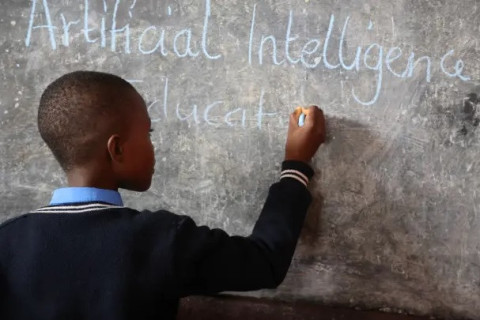 Artificial Intelligence
Educat